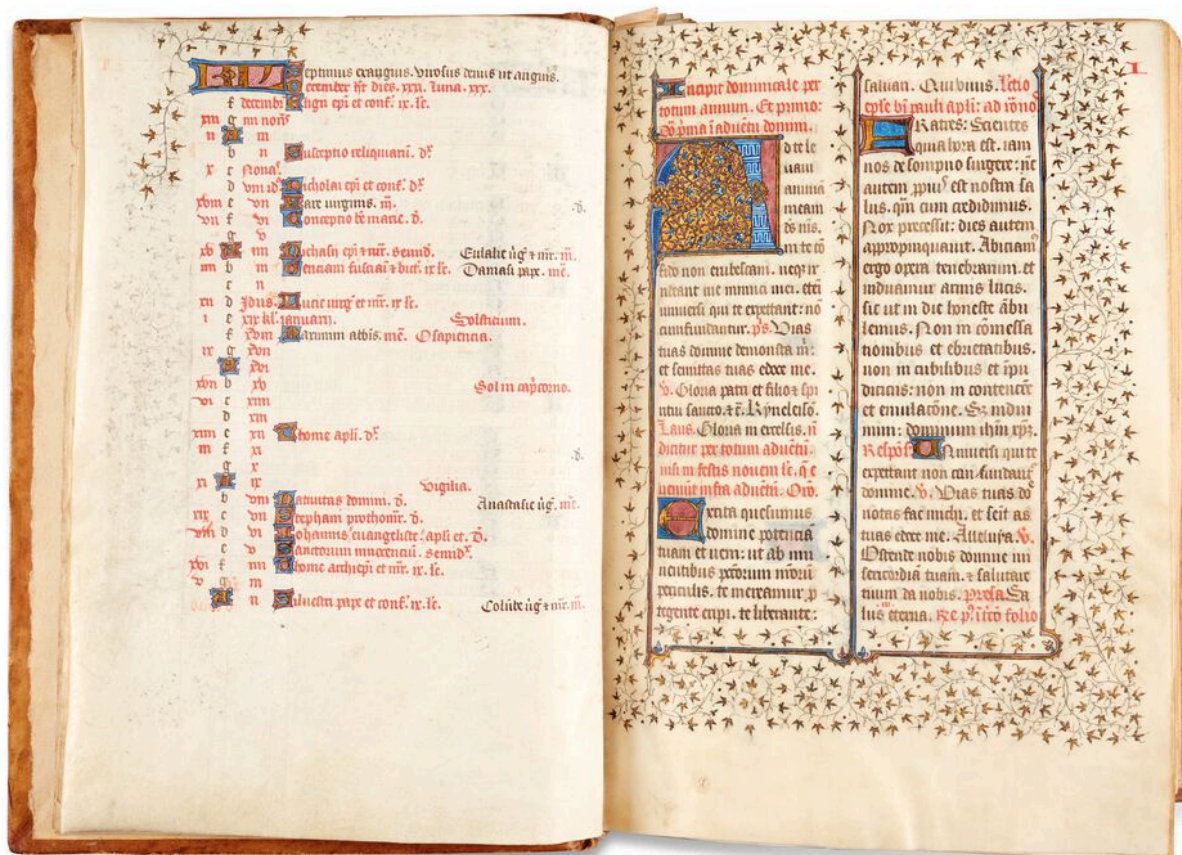 KL Septimus exanguis. virosus denus ut anguis.
December ht dies. xxxi. luna. xxx.
f decembr Eligii epi et conf. ix. lc.
xiii g iiii noñ
ii A iii
b ii Susceptio reliquiarū. dx.
x c Nonas.
d viii id Nicholai epi et conf. dx.
xviii e vii Hare virginis. m. .d.
vii f vi Conceptio be marie. d.
g v
xv A iiii Nichasii epi et mr. semid. Eulalie v̄g. et mr. m.
iiii b iii Genciani fusciani et vict. ix lc. Damasi pape. me.
c ii
xii d Idus. Lucie virg et mr. ix lc.
i e xix kl. januarii. Solsticium.
f xviii Maximini atbis. me. O sapiencia.
ix g xvii
A xvi
xvii b xv Sol in capcorno.
vi c xiiii
d xiii
xiiii e xii Thome apli. dx.
iii f xi .d.
g x
xi A ix Vigilia.
b viii Nativitas domini. d. Anastasie v̄g. me.
xix c vii Stephani prothomr. d.
viii d vi Iohannis euangeliste apli et. d.
e v Sanctorum innocenciū. semidx.
xvi f iiii Thome archiepi et mr. ix. lc.
v g iii
A ii Silvestri pape et conf. ix. lc. Colūbe v̄g et mr. m.
Incipit dominicale per
totum annum. Et primo:
Dō prima ī aduētu domini.
Ad te le
uaui
animā
meam
ds ms.
in te cō
fido non erubescam. neqz ir
rideant me inimici mei. eteī
uniuersi qui te expettant: nō
cunfundantur. ps. Vias
tuas domine demonstra m̄:
et semitas tuas edoce me.
V. Gloria patri et filio et spi
ritu sancto. et c̄. Kyrieleisō.
Laus. Gloria in excelsis. n̄
dicitur per totum aduētū.
nisi in festis nouem lc. q̄ e
ueniūt infra aduētū. Orō.
Excita quesumus
domine potenciā
tuam et ueni: ut ab im
minentibus pctōrum nrōrū
periculis. te mereamur p
tegente eripi. te liberante:
I
saluari. Qui viuis. Lectio
eple bī pauli apli: ad rōno
FRatres: Scientes
quia hora est. iam
nos de sompno surgere: nc
autem ppiu est nostra sa
lus. qm cum credidimus.
Nox precessit: dies autem
appropinquauit. Abiciam
ergo opera tenebrarum. et
induamur armis lucis.
sic ut in die honeste ābu
lemus. Non in cōmessa
tionibus et ebrietatibus.
non in cubilibus et īpu
dicitiis: non in contencōe
et emulacōne. Sz indui
mini: dominum ihm xpm.
Respōs Uniuersi qui te
expettant non con fundant
domine. V. Vias tuas dō
notas fac michi. et seīt as
tuas edoce me. Alleluya. V.
Ostende nobis domine mi
sericordiā tuam. et salutare
tuum da nobis. Prosa. Sa
lus eterna. Re p. i scō folio